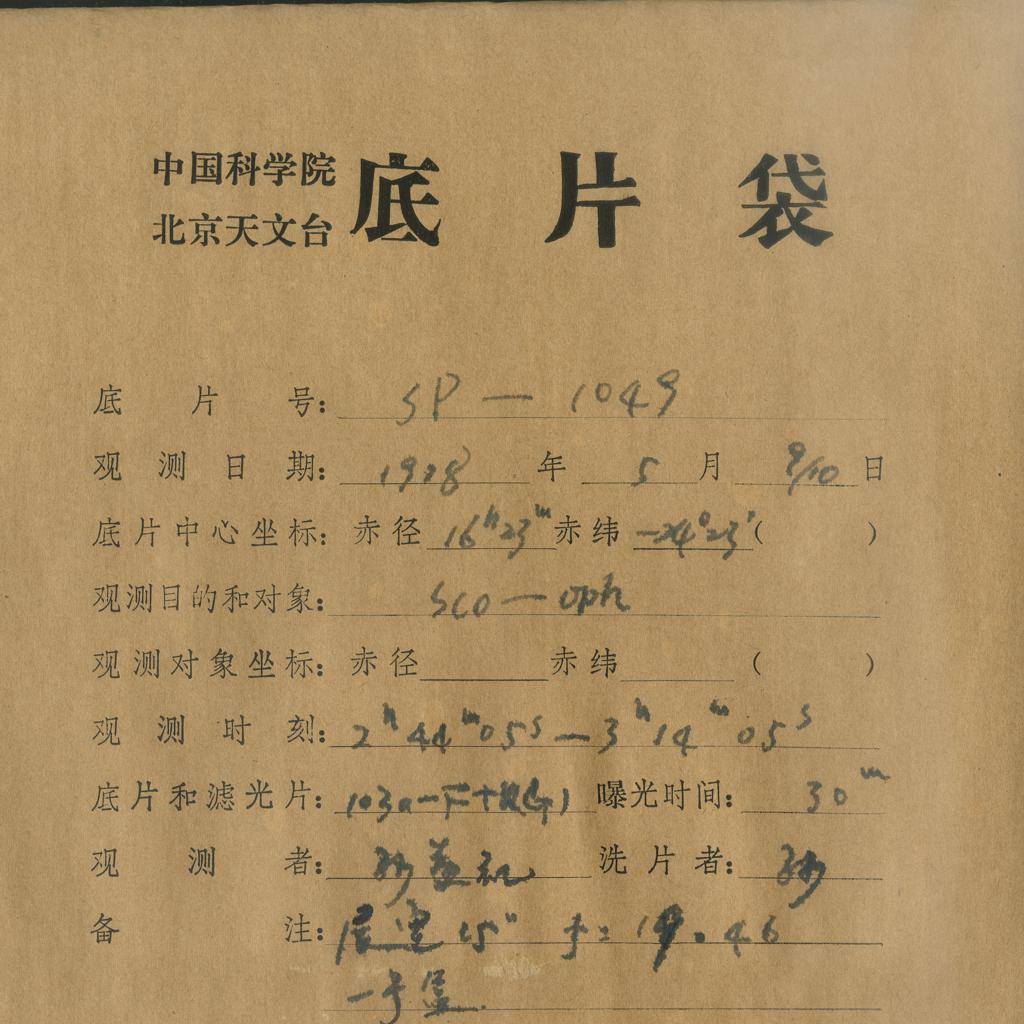 中国科学院
北京天文台
底片袋
底片号: SP — 1049
观测日期: 1978 年 5 月 9/10 日
底片中心坐标: 赤径 16h23m 赤纬 -24°23′ ( )
观测目的和对象: Sco — oph
观测对象坐标: 赤径 赤纬 ( )
观测时刻: 2h 44m 05s — 3h 14m 05s
底片和滤光片: 103a-F+ 曝光时间: 30m
观测者: 孙益礼 洗片者: 孙
备注: 15" f: 19.46
一号盒.